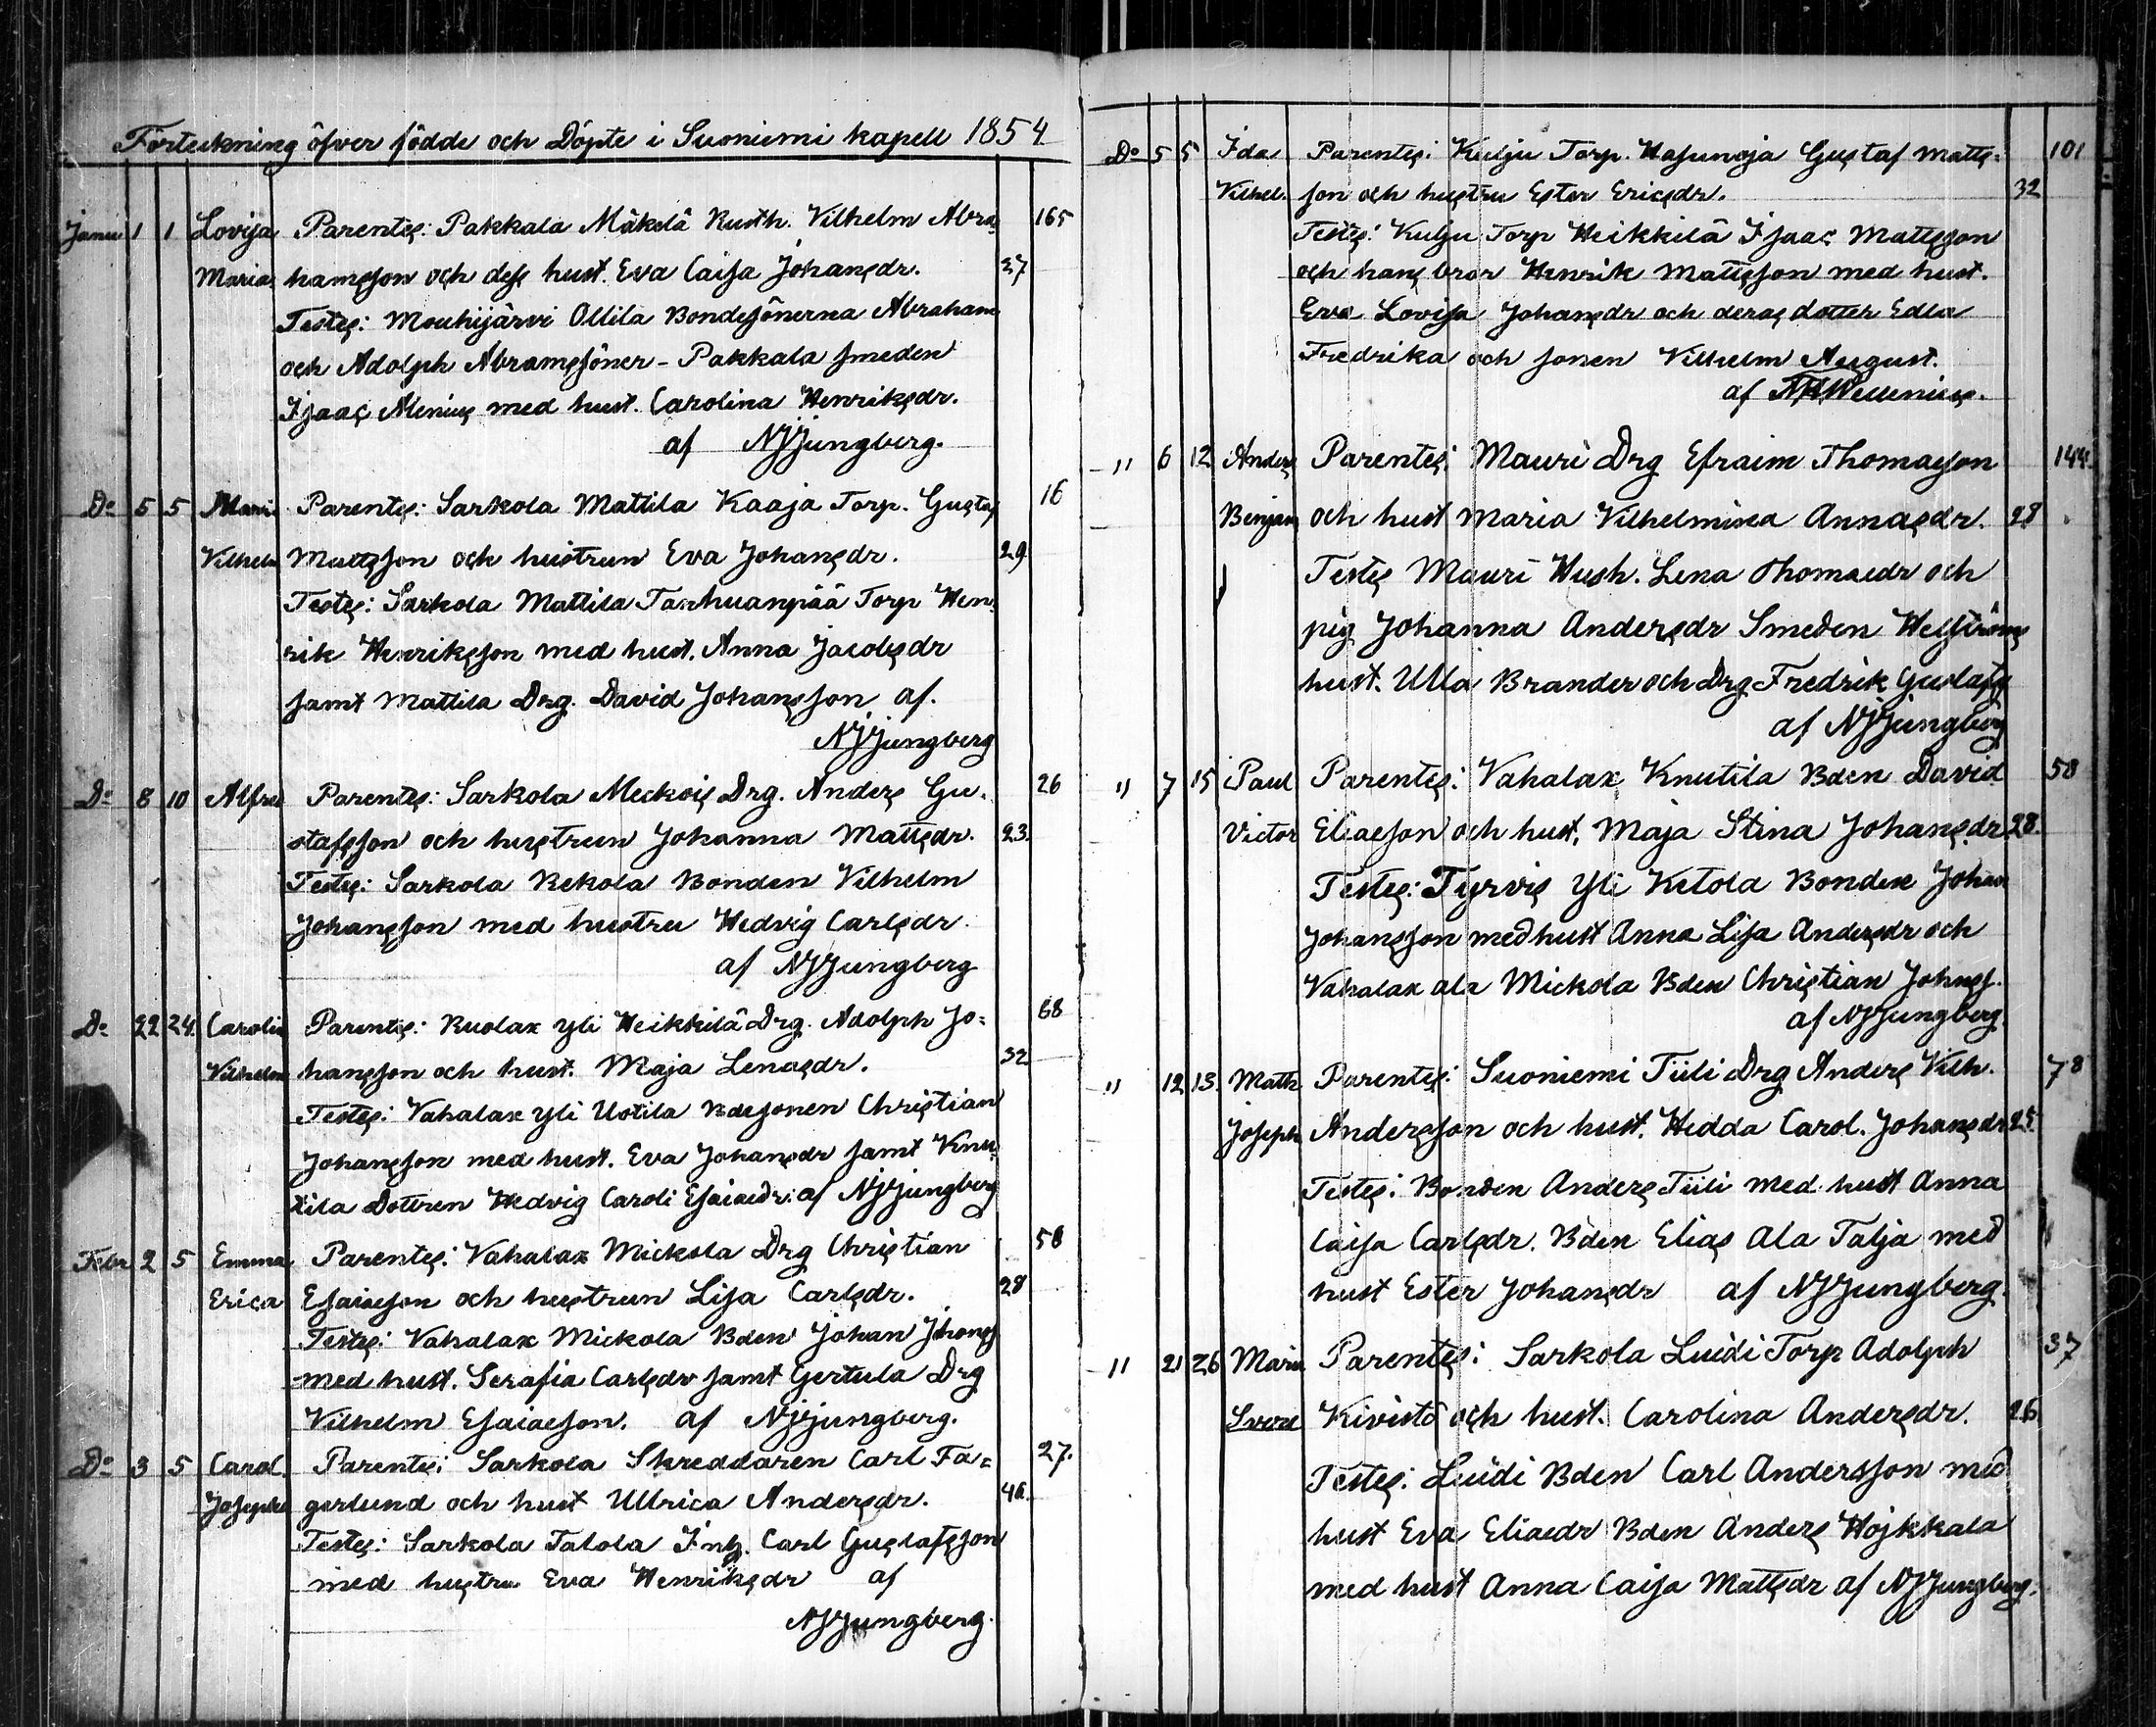 Förteckning öfver födde och Döpte i Suoniemi kapell 1854
Janu 1 1 Lovisa Parentes: Pakkala Mäkelä Rusth. Vilhelm Abra- 165
Maria hamsson och dess hust. Eva Caisa Johansdr. 37
Testes: Mouhijärvi Ollila Bondesönerna Abraham
och Adolph Abramssöner - Pakkala smeden
Isaac Alenius med hust. Carolina Henriksdr.
af NJjungberg.
Do 5 5 Maria Parentes: Sarkola Mattila Kaaja Torp. Gustaf 16
Vilhelm Mattsson och hustrun Eva Johansdr. 29
Testes: Sarkola Mattila Tanhuanpää Torp Hen-
rik Henriksson med hust. Anna Jacobsdr
samt Mattila Drg. David Johansson af.
NJjungberg
Do 8 10 Alfred Parentes: Sarkola Meckois Drg. Anders Gu- 26
stafsson och hustrun Johanna Mattsdr. 23.
Testes: Sarkola Rekola Bonden Vilhelm
Johansson med hustru Hedvig Carlsdr.
af NJjungberg
Do 22 24. Carolin Parentes: Kuolax Yli Heikkilä Drg. Adolph Jo= 68
Vilhelm hansson och hust. Maja Lenasdr. 32
Testes: Vahalax Yli Uotila Bdesonen Christian
Johansson med hust. Eva Johansdr samt Knu-
tila Dottren Hedvig Caroli Esaiaedr: af NJjungberg
Febr 2 5 Emma Parentes: Vahalax Mickola Drg Christian 58
Erica Esaiaeson och hustrun Lisa Carlsdr. 28
Testes: Vahalax Mickola Bden Johan Jhons
med hust. Serafia Carlsdr samt Gertula Drg
Vilhelm Esaiaeson. af NJjungberg.
Do 3 5 Carol. Parentes: Sarkola Skreddaren Carl Fa= 27.
Josephi gerlund och hust Ullrica Andersdr. 46.
Testes: Sarkola Talola Inh. Carl Gustafsson
med hustru Eva Henriksdr af
NJjungberg.
Do 5 5 Ida Parentes: Kulju Torp. Hasunoja Gustaf Matts= 101
Vilhel. son och hustru Ester Ericsdr. 32
Testes: Kulju Torp Heikkilä Isaac Mattsson
och hans bror Henrik Mattsson med hust.
Eva Lovisa Johansdr och deras dotter Edla
Fredrika och sonen Vilhelm August.
af Wellenius.
" 6 12 Anders Parentes: Mauri Drg Efraim Thomaeson 144.
Benjam och hust Maria Vilhelmina Annasdr. 28
Testes Mauri Hush. Lena Thomaedr och
pig Johanna Andersdr Smeden Hellströms
hust. Ulla Brander och Drg Fredrik Gustafs
af NJjungberg
" 7 15 Paul Parentes: Vahalax Knutila Bden David 58
Victor Eliaeson och hust. Maja Stina Johansdr 28.
Testes: Tyrvis Yli Ketola Bonden Johan
Johansson med hust Anna Lisa Andersdr och
Vahalax ala Mickola Bden Christian Johns.
af NJjungberg.
" 12 13. Math Parentes: Suoniemi Tiili Drg Anders Vilh. 78
Joseph Andersson och hust. Hedda Carol. Johansdr 25.
Testes: Bonden Anders Tiili med hust Anna
Caisa Carlsdr. Bden Elias Ala Talja med
hust Ester Johansdr af NJjungberg.
" 21 26 Maria Parentes: Sarkola Luidi Torp Adolph 37
Kivistö och hust. Carolina Andersdr. 26
Testes: Luidi Bden Carl Andersson med
hust Eva Eliaedr Bden Anders Hojkkala
med hust Anna Caisa Mattsdr af NJjungberg.